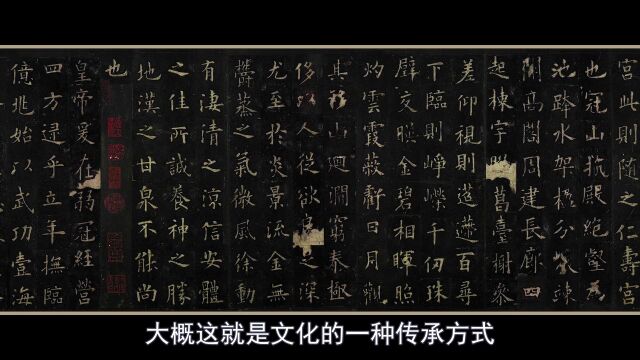 宫此則隨之仁壽宫
也冠山抗殿絶壑為
池跨水架楹分巖竦
闕高閣周建長廊四
起棟宇膠葛臺榭參
差仰視則迢遰百尋
下臨則崢嶸千仞珠
璧交暎金碧相暉照
灼雲霞蔽虧日月觀
其移山迴澗窮泰極
侈以人從欲良深
尤至於炎景流金無
鬱蒸之氣微風徐動
有淒清之涼信安體
之佳所誠養神之勝
地漢之甘泉不能尚
也
皇帝爰在弱冠經營
四方逮乎立年撫臨
億兆始以武功壹海
大概这就是文化的一种传承方式